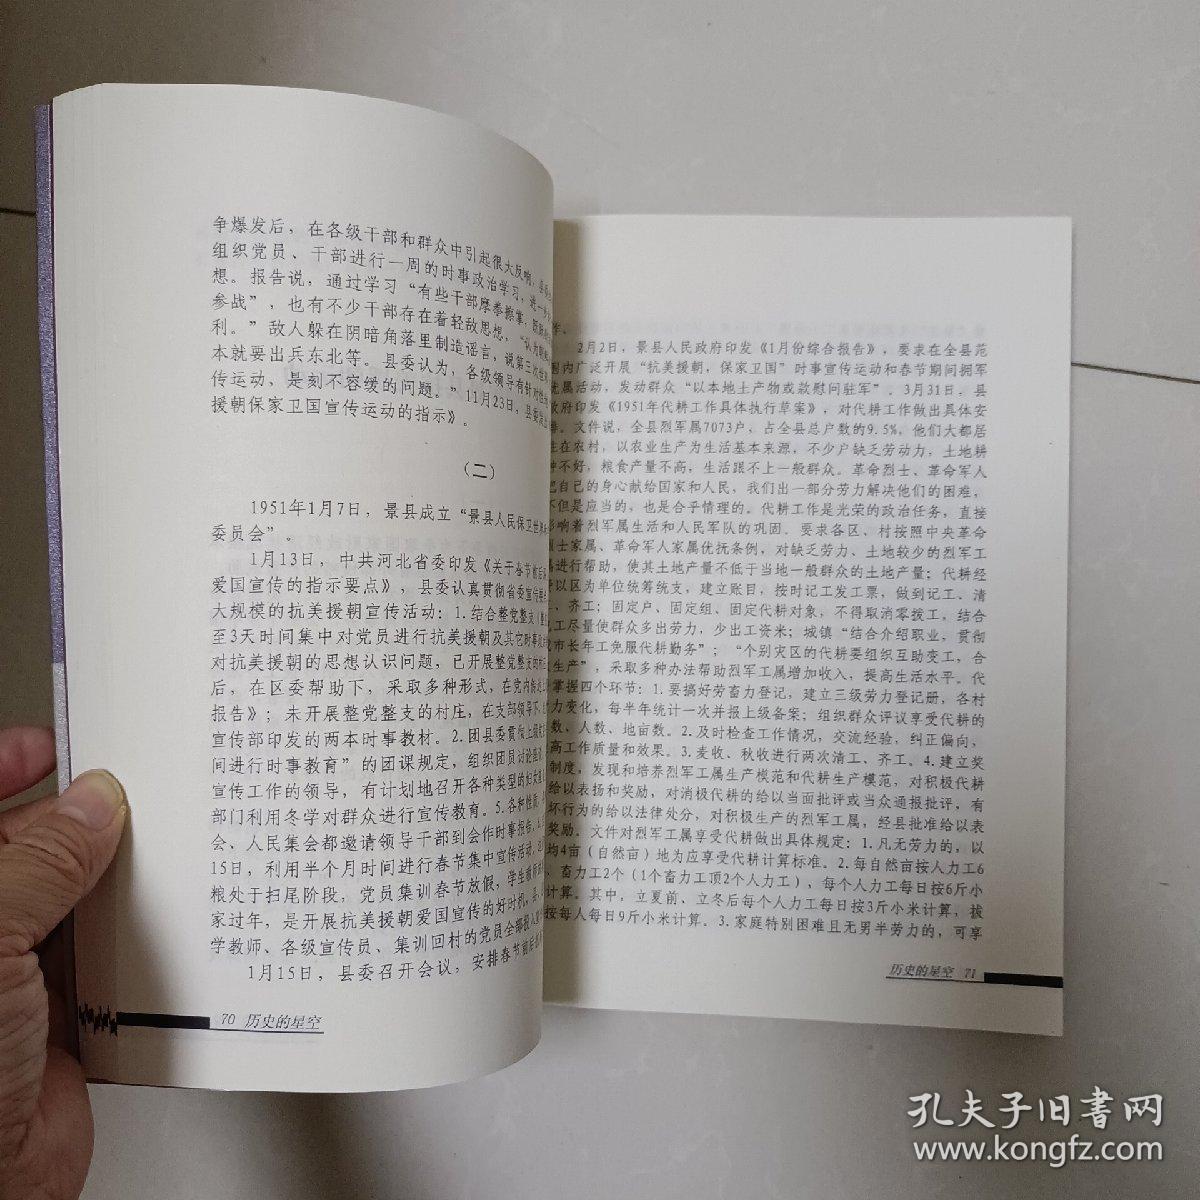 争爆发后，在各级干部和群众中引起很大反响，县
组织党员、干部进行一周的时事政治学习，进一步
想。报告说，通过学习“有些干部摩拳擦掌，
参战”，也有不少干部存在着轻敌思想，“认为
利。”敌人躲在阴暗角落里制造谣言，说第三次世
本就要出兵东北等。县委认为，各级领导有针对性
传运动，是刻不容缓的问题。”11月23日，县委发
援朝保家卫国宣传运动的指示》。
（二）
1951年1月7日，景县成立“景县人民保卫世
委员会”。
1月13日，中共河北省委印发《关于春节前后
爱国宣传的指示要点》，县委认真贯彻省委宣传
大规模的抗美援朝宣传活动：1.结合整党整支（
至3天时间集中对党员进行抗美援朝及其它时事
对抗美援朝的思想认识问题，已开展整党整支的村
后，在区委帮助下，采取多种形式，在党内传达
报告》；未开展整党整支的村庄，在支部领导下，
宣传部印发的两本时事教材。2.团县委贯彻上级
间进行时事教育”的团课规定，组织团员讨论
宣传工作的领导，有计划地召开各种类型的妇女
部门利用冬学对群众进行宣传教育。5.各种性质
会、人民集会都邀请领导干部到会作时事报告，
15日，利用半个月时间进行春节集中宣传活动，
粮处于扫尾阶段，党员集训春节放假，学生
家过年，是开展抗美援朝爱国宣传的好时机，县、
学教师、各级宣传员、集训回村的党员全部投入
1月15日，县委召开会议，安排春节前后
70 历史的星空
作。
2月2日，景县人民政府印发《1月份综合报告》，要求在全县范
围内广泛开展“抗美援朝，保家卫国”时事宣传运动和春节期间拥军
优属活动，发动群众“以本地土产物或款慰问驻军”。3月31日，县
政府印发《1951年代耕工作具体执行草案》，对代耕工作做出具体安
排。文件说，全县烈军属7073户，占全县总户数的9.5%，他们大都居
住在农村，以农业生产为生活基本来源，不少户缺乏劳动力，土地耕
种不好，粮食产量不高，生活跟不上一般群众。革命烈士、革命军人
把自己的身心献给国家和人民，我们出一部分劳力解决他们的困难，
不但是应当的，也是合乎情理的。代耕工作是光荣的政治任务，直接
影响着烈军属生活和人民军队的巩固。要求各区、村按照中央革命
烈士家属、革命军人家属优抚条例，对缺乏劳力、土地较少的烈军工
属进行帮助，使其土地产量不低于当地一般群众的土地产量；代耕经
费以区为单位统筹统支，建立账目，按时记工发工票，做到记工、清
工、齐工；固定户、固定组、固定代耕对象，不得取消零拨工，结合
工尽量使群众多出劳力，少出工资米；城镇“结合介绍职业，贯彻
市长年工免服代耕勤务”；“个别灾区的代耕要组织互助变工，合
生产”，采取多种办法帮助烈军工属增加收入，提高生活水平。代
掌握四个环节：1.要搞好劳畜力登记，建立三级劳力登记册，各村
力变化，每半年统计一次并报上级备案；组织群众评议享受代耕的
数、人数、地亩数。2.及时检查工作情况，交流经验，纠正偏向，
高工作质量和效果。3.麦收、秋收进行两次清工、齐工。4.建立奖
制度，发现和培养烈军工属生产模范和代耕生产模范，对积极代耕
给以表扬和奖励，对消极代耕的给以当面批评或当众通报批评，有
坏行为的给以法律处分，对积极生产的烈军工属，经县批准给以表
奖励。文件对烈军工属享受代耕做出具体规定：1.凡无劳力的，以
均4亩（自然亩）地为应享受代耕计算标准。2.每自然亩按人力工6
、畜力工2个（1个畜力工顶2个人力工），每个人力工每日按6斤小
计算。其中，立夏前、立冬后每个人力工每日按3斤小米计算，拔
按每人每日9斤小米计算。3.家庭特别困难且无男半劳力的，可享
历史的星空 71
孔夫子旧书网
www.kongfz.com